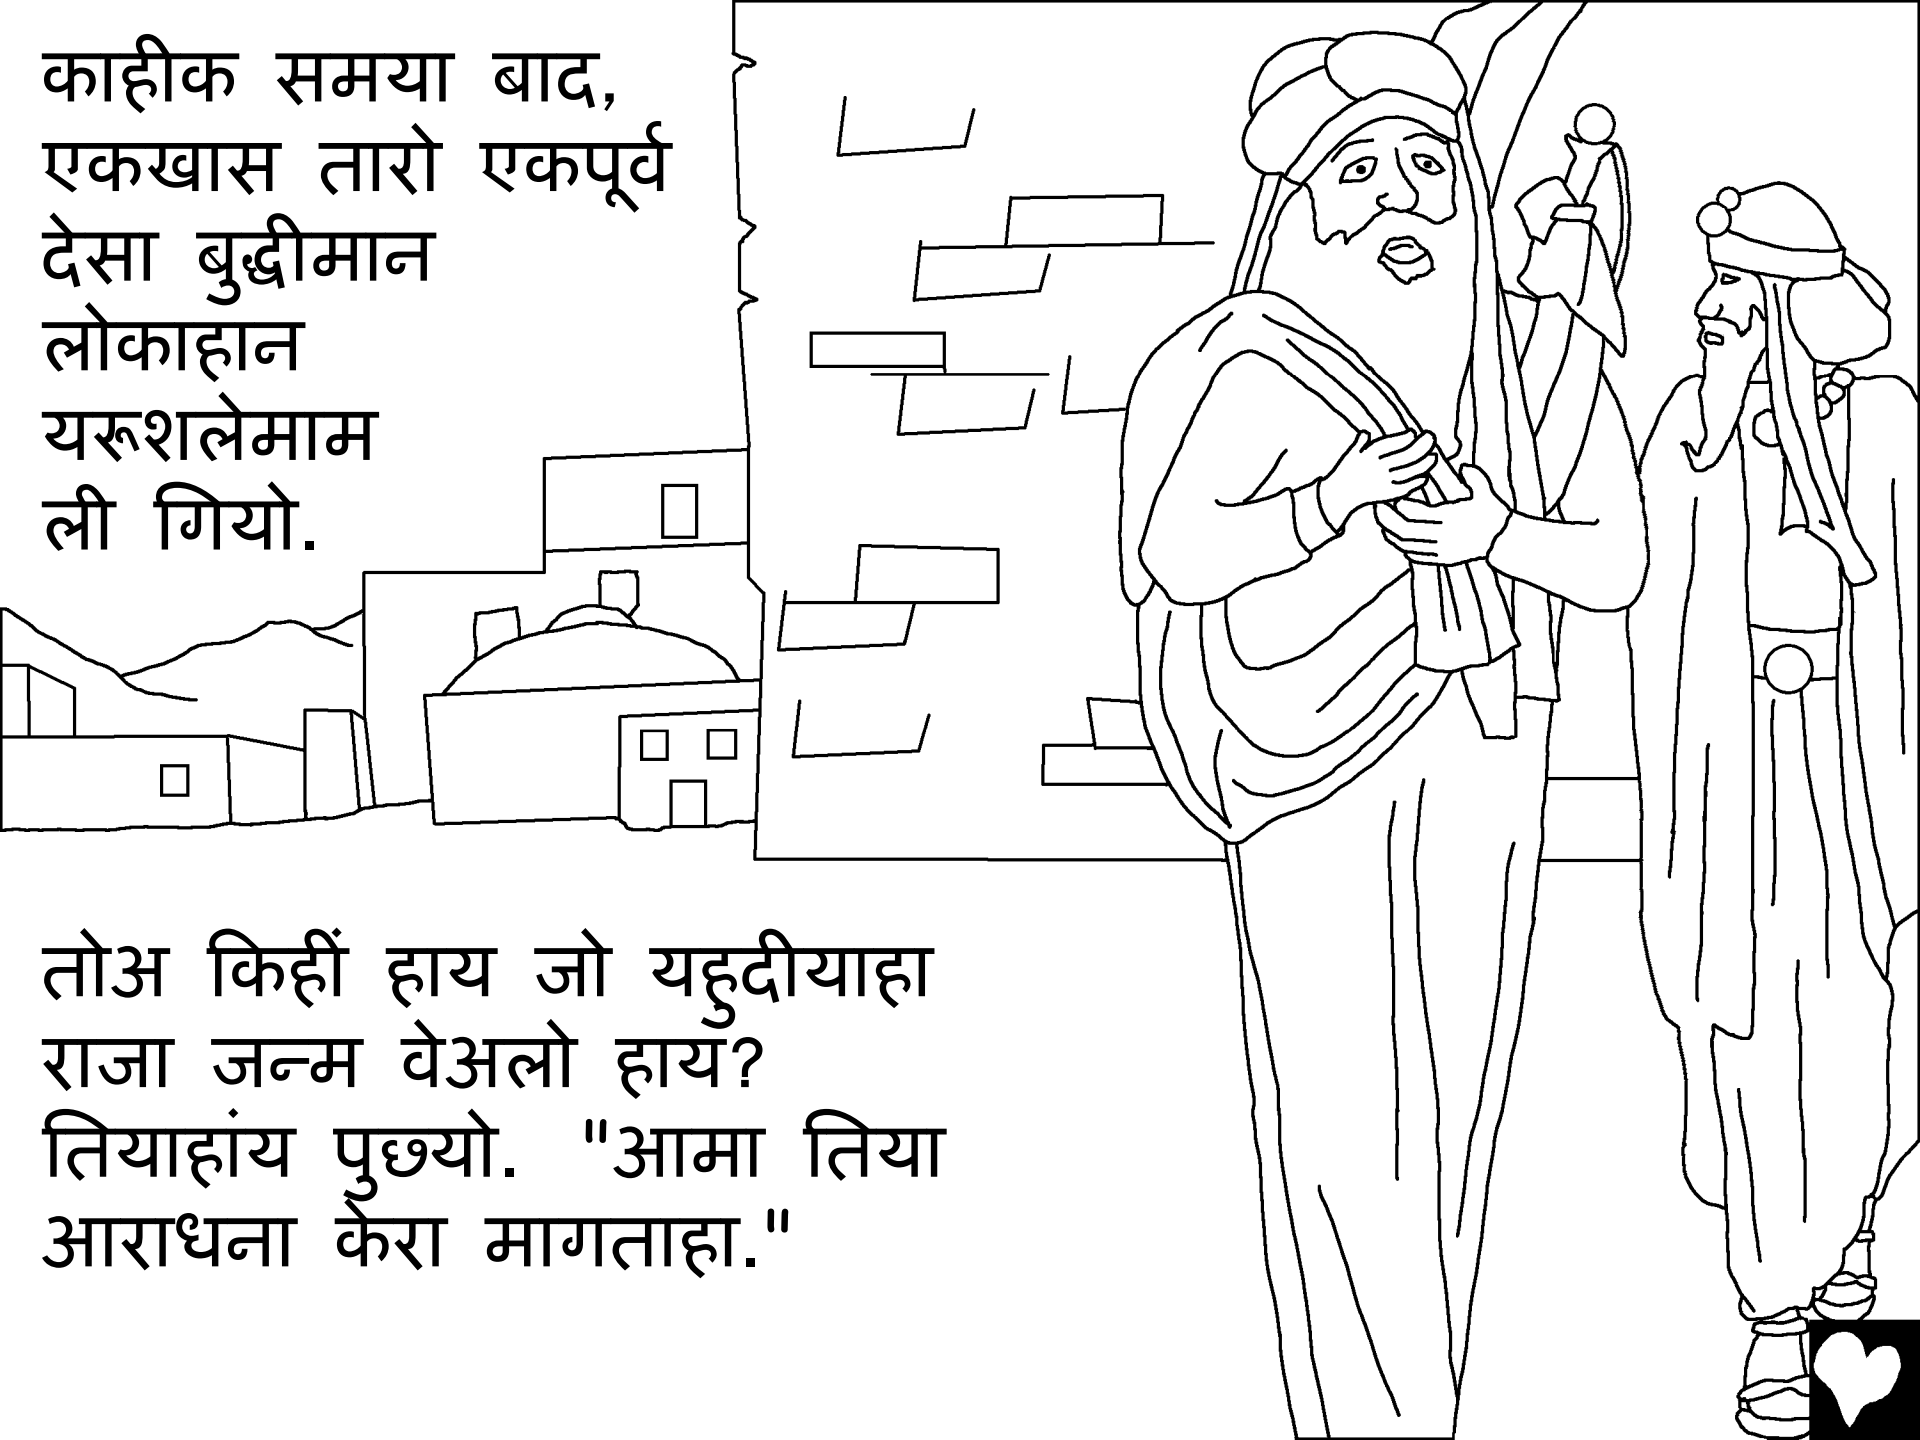 काहीक समया बाद,
एकखास तारो एकपूर्व
देसा बुद्धीमान
लोकाहान
यरूशलेमाम
ली गियो.
तोअ किहीं हाय जो यहुदीयाहा
राजा जन्म वेअलो हाय?
तियाहांय पुछ्यो. "आमा तिया
आराधना केरा मागताहा."